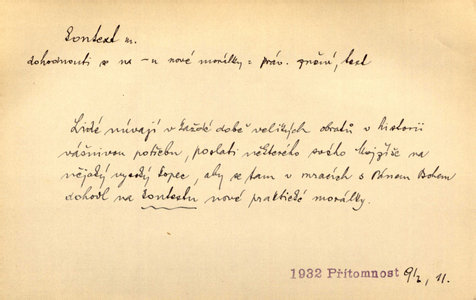 kontext m.
dohodnouti se na -u nové morálky = práv. znění, text
Lidé mívají v každé době velikých obratů v historii
vášnivou potřebu, poslati některého svého Mojžíše na
nějaký vysoký kopec, aby se tam v mracích s Pánem Bohem
dohodl na kontextu nové praktické morálky.
1932 Přítomnost 9/2, 11.